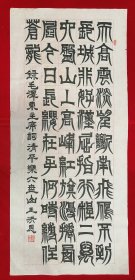 天高雲淡望斷南飛雁不到
長城非好漢屈指行程二萬
六盤山上高峰紅旗漫卷西
風今日長纓在手何時縛住
蒼龍
錄毛澤東主席詞清平樂六盤山